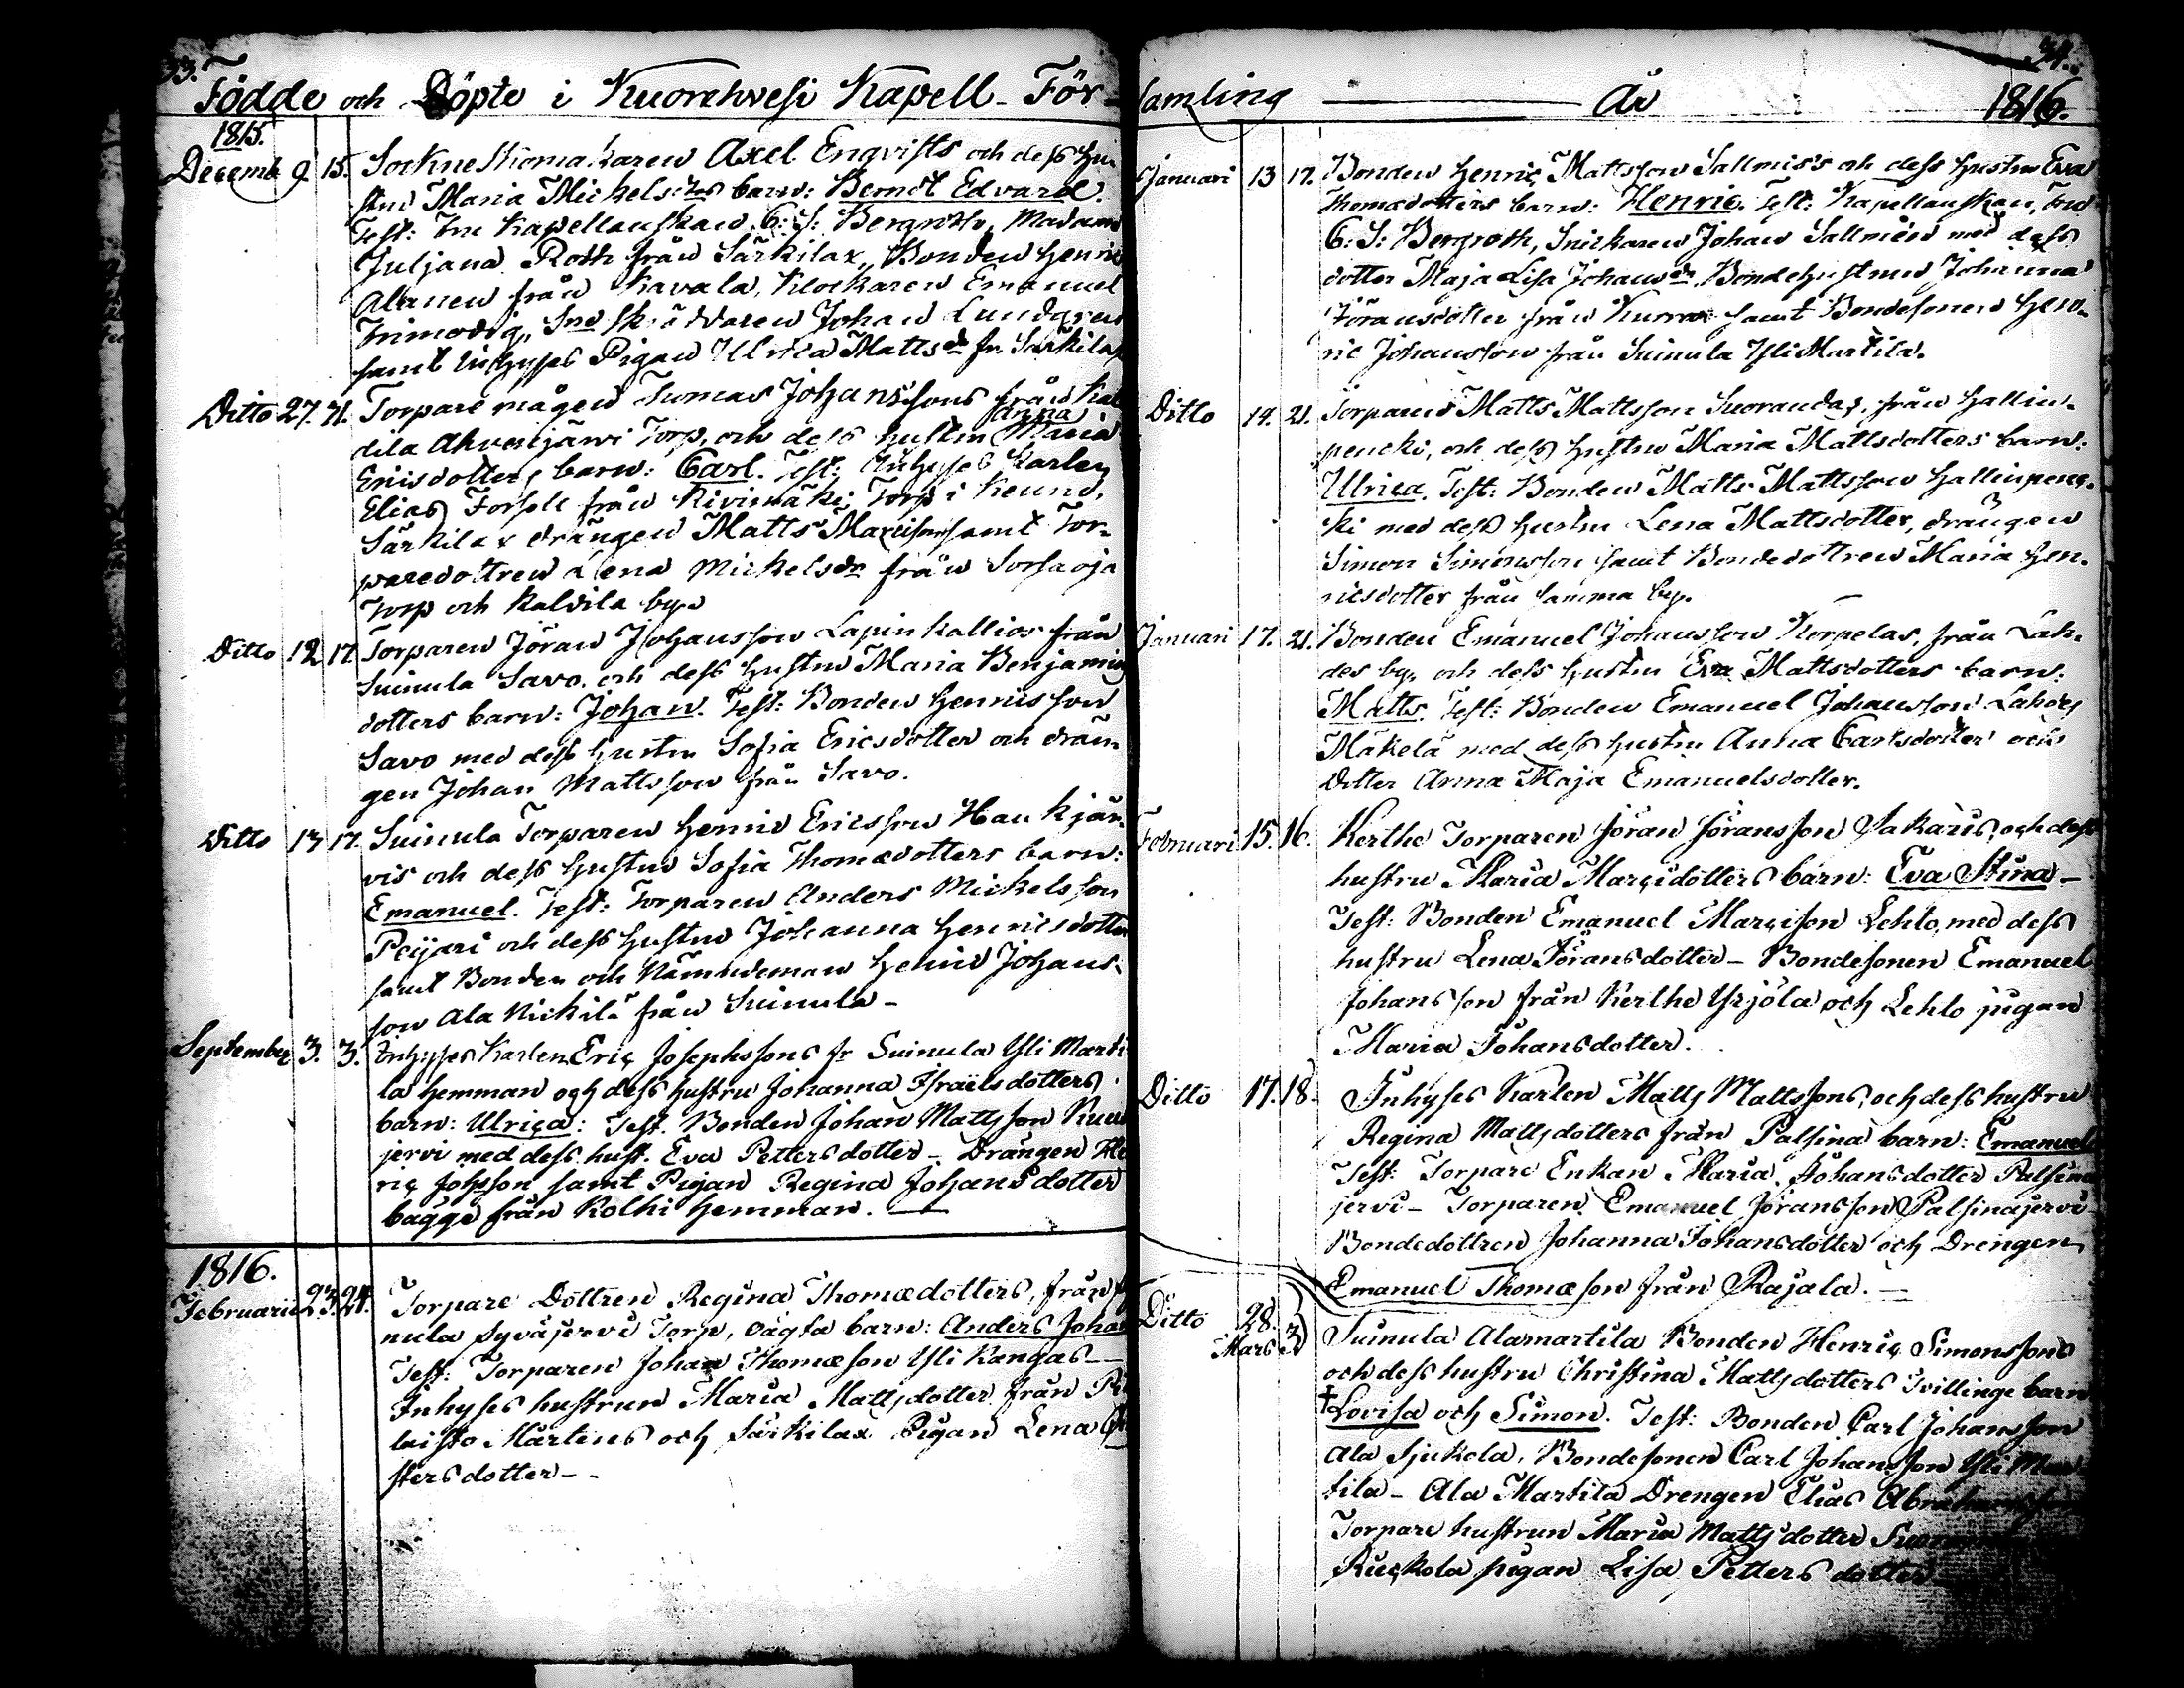 33.
Födde och Döpte i Kuorehvesi Kapell-För-
1815.
Decemb 9 15. Sockne Skomakaren Axel Enqvists och dess hu-
stru Maria Michelsdrs barn: Berndt Edvard.
Test: Fru Kapellanskan C: S: Bergroth, Madame
Juljana Roth från Särkilax, Bonden Henric
Alanen från Kavala, Klockaren Emanuel
Frimodig, Sne Skräddaren Johan Lundgren
samt Inhyses Pigan Ulrica Mattsdr fr. Särkilax
Ditto 27. 31. Torpare mågen Tomas Johanssons från Kal
dila Ahvenjärvi Torp, och dess hustru Anna Maria
Ericsdotters barn: Carl. Test: Inhyses Karlen
Elias Forsell från Kivimäki Torp i Keuru,
Särkilax drängen Matts Marcisson samt Tor-
paredottren Lena Michelsdr från Sorsaoja
Torp och Kaldila by.
Ditto 12 17 Torparen Jöran Johansson Lapinkallios från
Suinula Savo, och dess hustru Maria Benjamins
dotters barn: Johan. Test: Bonden Henricsson
Savo med dess hustru Sofia Ericsdotter och drän-
gen Johan Mattsson från Savo.
Ditto 13 17 Suinula Torparen Henric Ericsson Haukijär-
vis och dess hustru Sofia Thomædotters barn:
Emanuel. Test: Torparen Anders Michelsson
Peijari och dess hustru Johanna Henricsdotter
samt Bonden och Nämndeman Henric Johans-
son Ala Kickilä från Suinula-
September 3. 3. Inhyses Karlen Eric Josephssons fr Suinula Yli Marti
la hemman och dess hustru Johanna Israelsdotters
barn: Ulrica: Test. Bonden Johan Mattsson
jervi med dess hust. Eva Pettersdotter - Drängen He
ric Johsson samt Pigan Regina Johansdotter
bägge från Kolhi hemman.
1816.
Februarii 23. 24. Torpare Dottren Regina Thomædotters, från
nula syväjervi Torp, oägta barn: Anders Johan
Test: Torparen Johan Thomæson Yli Kangas-
Inhyses hustrun Maria Mattsdotter från
laisto Mårtens och Särkilax Pigan Lena
stersdotter-
34.
samling År 1816.
Januari 13 17. Bonden Henric Mattsson Sallmis's och dess hustru Eva
Thomædotters barn: Henric. Test: Kapellanskan, Fru
C: S: Bergroth, Snickaren Johan Sallmén med dess
dotter Maja Lisa Johansdr, Bondehustrun Johanna
Jöransdotter från Kurra samt Bondesonen Hen-
ric Johansson från Suinula Yli Martila.
Ditto 14. 21. Torparen Matts Mattsson Suorandas, från Hallin-
pencki, och dess hustru Maria Mattsdotters barn:
Ulrica. Test: Bonden Matts Mattsson Hallinpenc-
ki med dess hustru Lena Mattsdotter, drängen
Simon Simonsson samt Bondedottren Maria Hen-
ricsdotter från samma by.
Januari 17. 21. Bonden Emanuel Johansson Korpelas, från Läh-
des by, och dess hustru Eva Mattsdotters barn:
Matts. Test: Bonden Emanuel Johansson Lähdes
Mäkelä med dess hustru Anna Carlsdotter och
Dotter Anna Maja Emanuelsdotter.
Februari 15. 16. Kerthe Torparen Jöran Jöransson Sakaris, och dess
hustru Maria Marcidotters barn: Eva Stina-
Test: Bonden Emanuel Marcison Lehto, med dess
hustru Lena Jöransdotter- Bondesonen Emanuel
Johansson från Kerthe Yrjölä och Lehto pigan
Maria Johansdotter.
Ditto 17. 18. Inhyses Karlen Matts Mattssons, och dess hustru
Regina Mattsdotters från Palsina barn: Emanuel
Test: Torpare Enkan Maria Johansdotter Palsina
jervi- Torparen Emanuel Jöransson Palsinajervi-
Bondedottren Johanna Johansdotter och Drengen
Emanuel Thomæson från Rajala.-
Ditto 28. Mars 3 Suinula Alamartila Bonden Henric Simonssons
och dess hustru Christina Mattsdotters Tvillinge barn
†Lovisa och Simon. Test: Bonden Carl Johansson
Ala Sjukola, Bondesonen Carl Johansson Yli Mar
tila- Ala Martila Drengen Elias
Torpare hustrun Maria Mattsdotter
Rieckola pigan Lisa Petters dotter